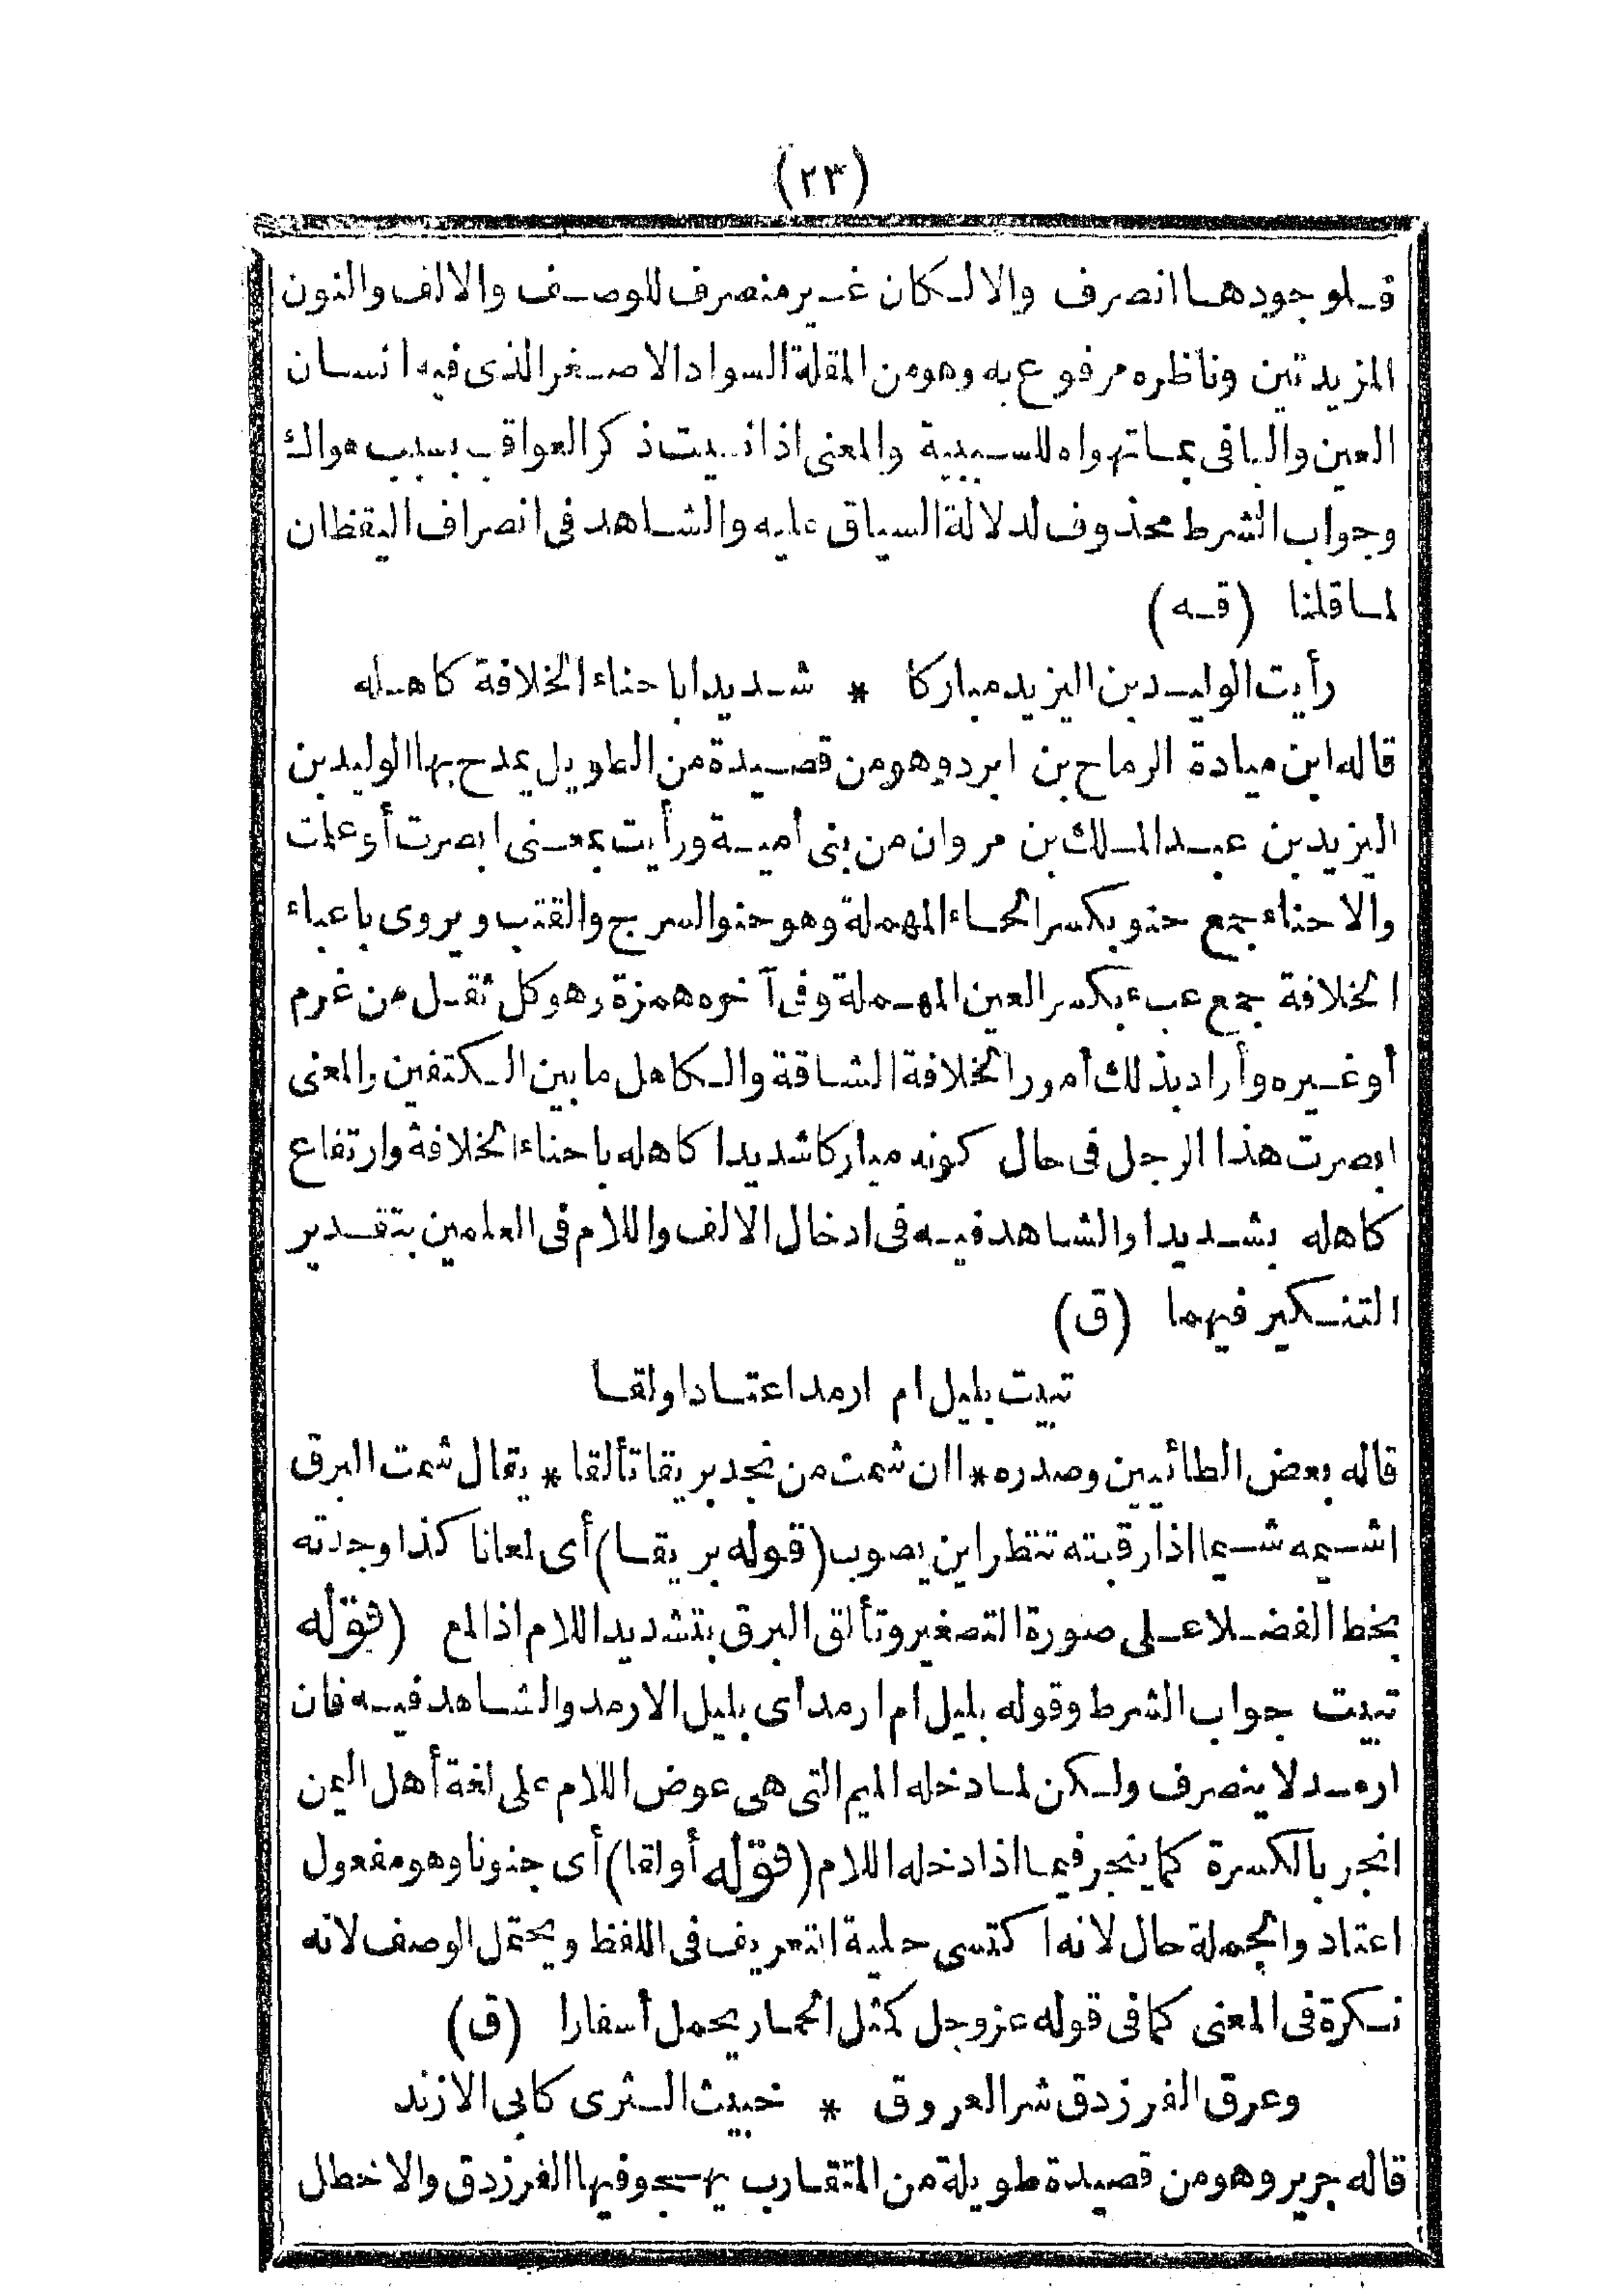 (٢٣)
فلوجودها انصرف والا لكان غير منصرف للوصف والالف والنون
المزيدتين وناظره مرفوع به وهو من المقلة السواد الاصغر الذى فيه انسان
العين والبا فى بما تهواه للسببية والمعنى اذا نسيت ذكر العواقب بسبب هواك
وجواب الشرط محذوف لدلالة السياق عليه والشاهد فى انصراف اليقظان
لما قلنا (قه)
رأيت الوليد بن اليزيد مباركا * شديدا باحناء الخلافة كاهله
قاله ابن ميادة الرماح بن ابرد وهو من قصيدة من الطويل يمدح بها الوليد بن
اليزيد بن عبد الملك بن مروان من بنى أمية ورأيت بمعنى ابصرت أو علمت
والاحناء جمع حنو بكسر الحاء المهملة وهو حنو السرج والقتب ويروى باعباء
الخلافة جمع عبء بكسر العين المهملة وفى آخره همزة وهو كل ثقل من غرم
أو غيره وأراد بذلك أمور الخلافة الشاقة والكاهل ما بين الكتفين والمعنى
ابصرت هذا الرجل فى حال كونه مباركا شديدا كاهله باحناء الخلافة وارتفاع
كاهله بشديدا والشاهد فيه فى ادخال الالف واللام فى العلمين بتقدير
التنكير فيهما (ق)
تبيت بليل ام ارمد اعتادا ولقا
قاله بعض الطائيين وصدره * اان شمت من نجد بريقا تألقا * يقال شمت البرق
اشيمه شيما اذا رقبته تنظر اين يصوب (قوله بريقا) أى لمعانا كذا وجدته
بخط الفضلا على صورة التصغير وتألق البرق بتشديد اللام اذا لمع (قوله
تبيت جواب الشرط وقوله بليل ام ارمد اى بليل الارمد والشاهد فيه فان
ارمد لا ينصرف ولكن لما دخله الميم التى هى عوض اللام على لغة أهل اليمن
انجر بالكسرة كما ينجر فيما اذا دخله اللام (قوله أولقا) أى جنونا وهو مفعول
اعتاد والجملة حال لانه اكتسى حلية التعريف فى اللفظ ويحتمل الوصف لانه
نكرة فى المعنى كما فى قوله عز وجل كمثل الحمار يحمل أسفارا (ق)
وعرق الفرزدق شر العروق * خبيث الثرى كابى الازند
قاله جرير وهو من قصيدة طويلة من المتقارب يهجو فيها الفرزدق والاخطل